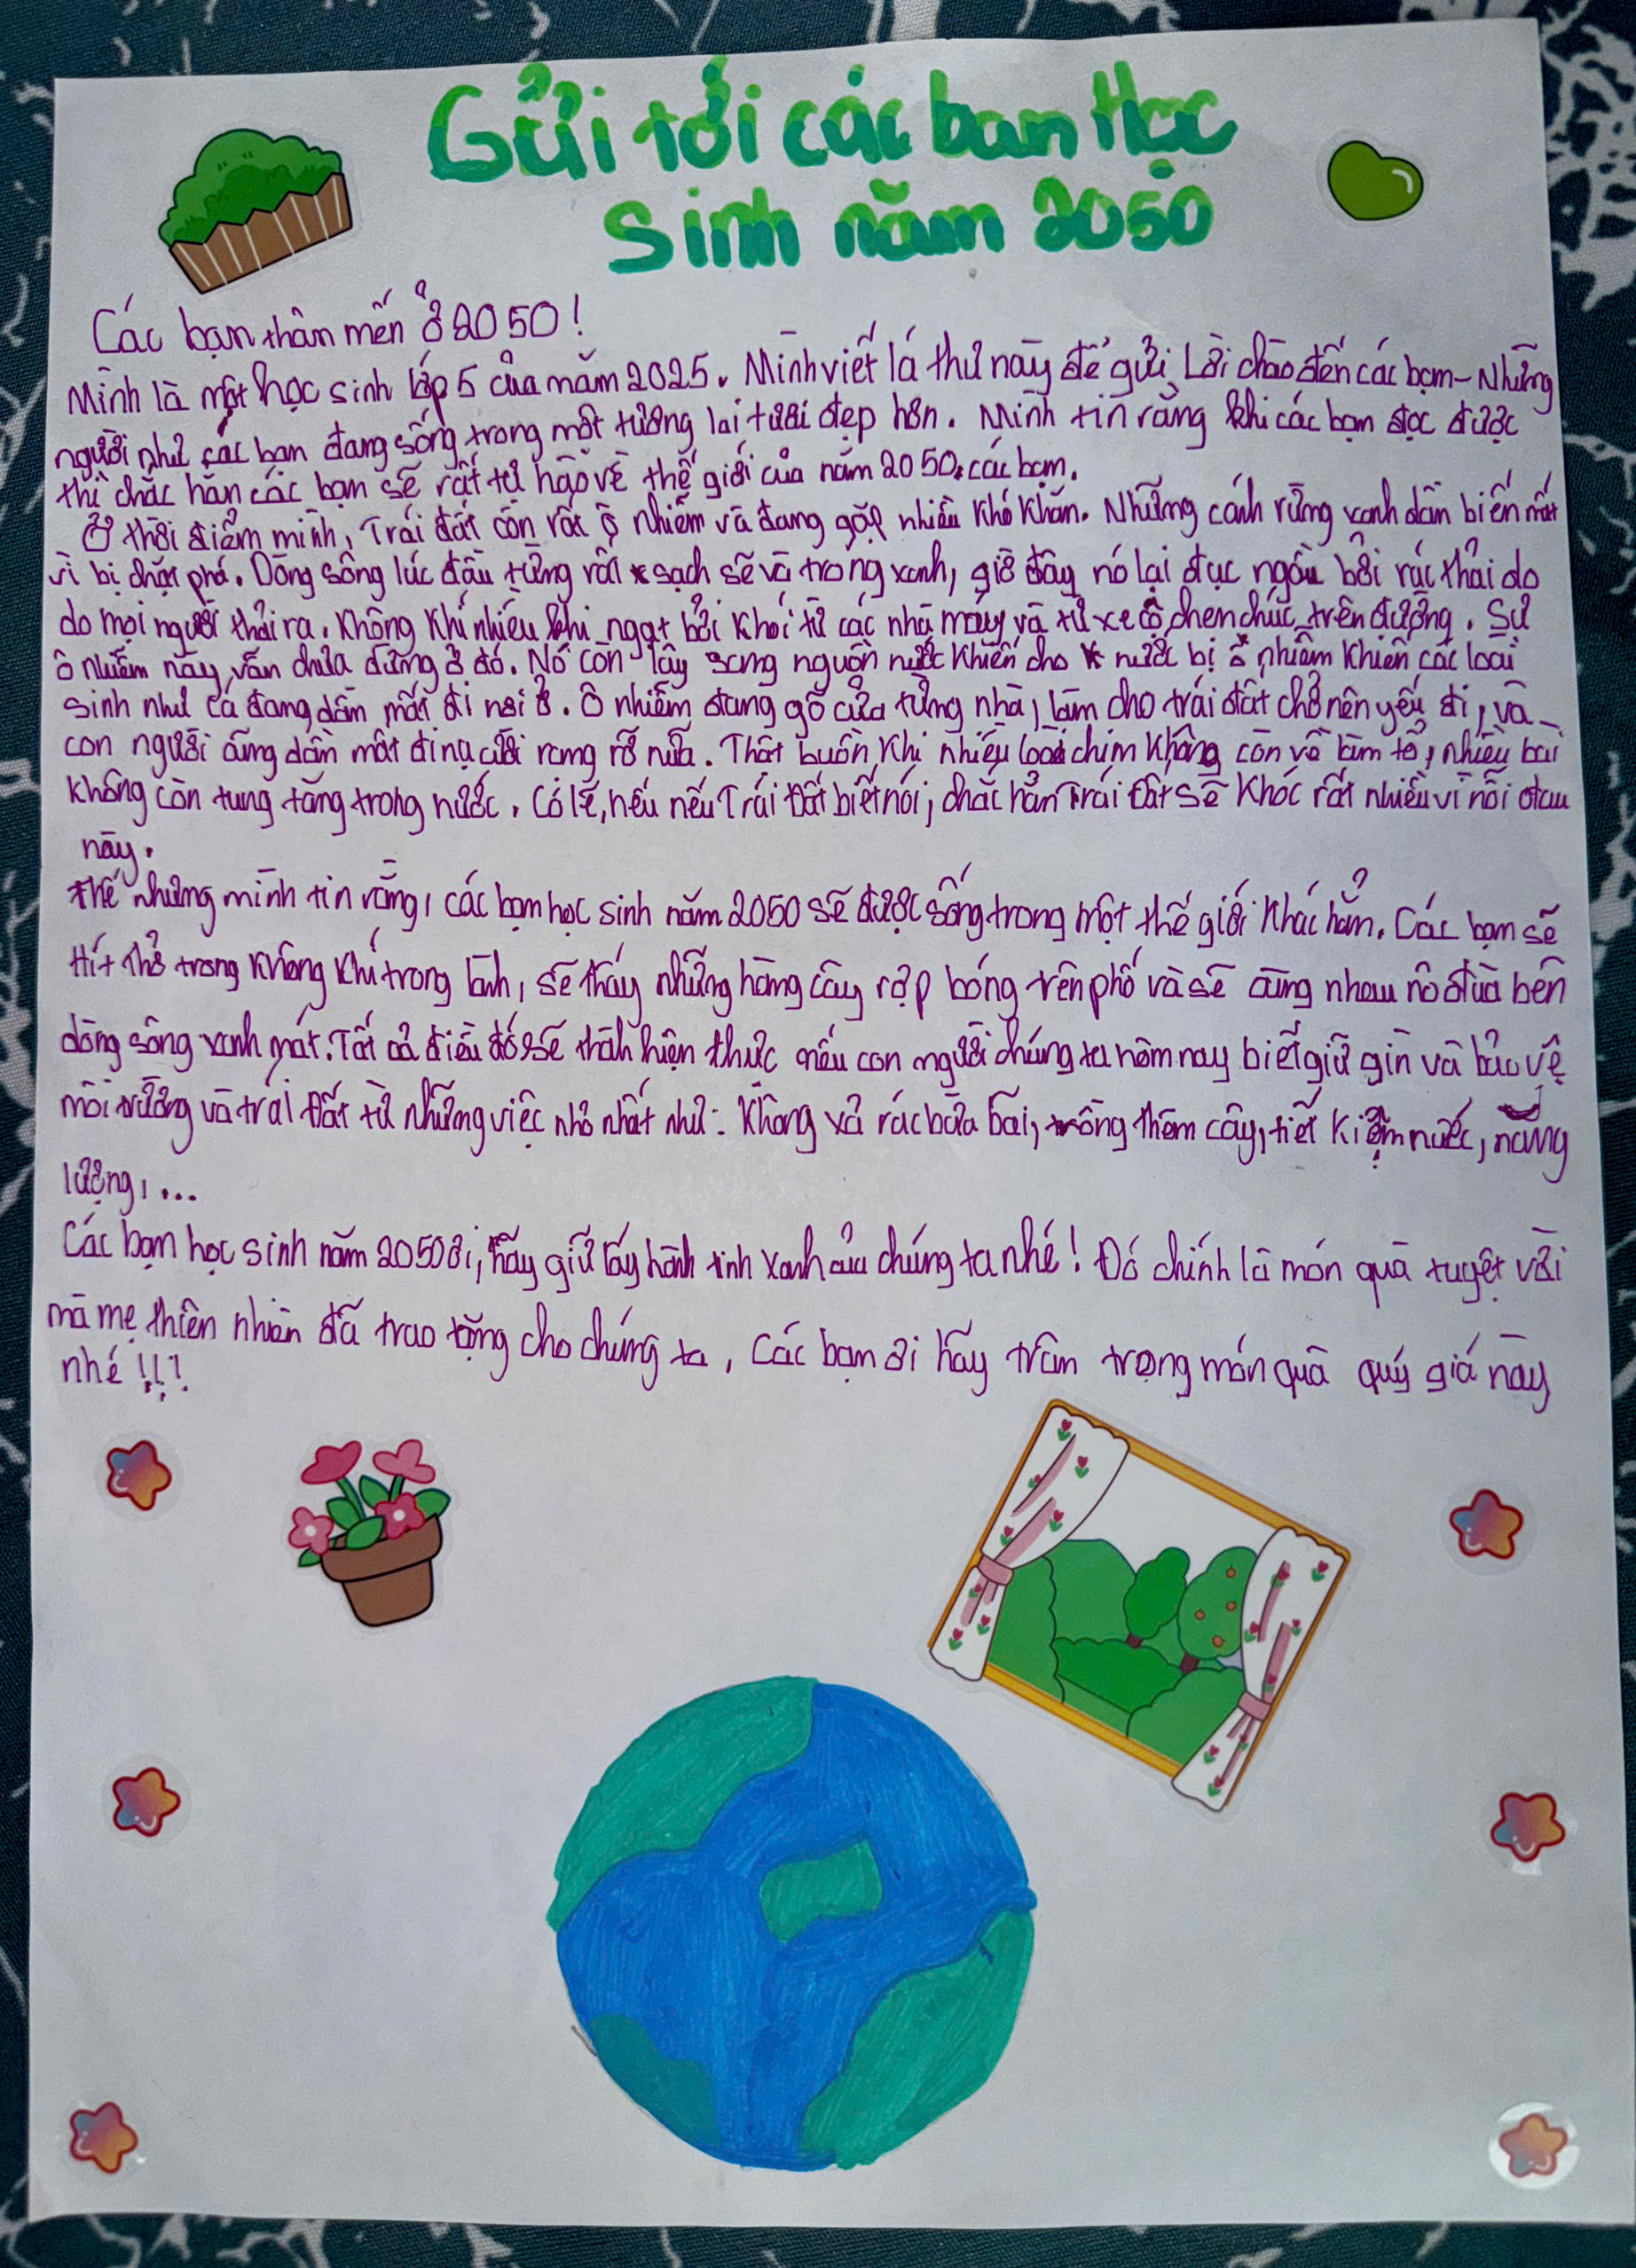 Gửi tới các bạn Học
Sinh năm 2050
Các bạn thân mến ở 2050!
Mình là một học sinh lớp 5 của năm 2025. Mình viết lá thư này để gửi Lời chào đến các bạn - Những
người như các bạn đang sống trong một tương lai tươi đẹp hơn. Mình tin rằng khi các bạn đọc được
thì chắc hẳn các bạn sẽ rất tự hào về thế giới của năm 2050 các bạn.
Ở thời điểm mình, Trái đất còn rất ô nhiễm và đang gặp nhiều khó khăn. Những cánh rừng xanh dần biến mất
vì bị chặt phá. Dòng sông lúc đầu từng rất sạch sẽ và trong xanh, giờ đây nó lại đục ngầu bởi rác thải do
do mọi người thải ra. Không khí nhiều khi ngạt bởi khói từ các nhà máy và từ xe cộ chen chúc trên đường. Sự
ô nhiễm này vẫn chưa dừng ở đó. Nó còn lây sang nguồn nước khiến cho nước bị ô nhiễm khiến các loài
sinh như cá đang dần mất đi nơi ở. Ô nhiễm đang gõ cửa từng nhà, làm cho trái đất chở nên yếu đi, và
con người cũng dần mất đi nụ cười rạng rỡ nữa. Thật buồn khi nhiều loài chim không còn về làm tổ, nhiều
không còn tung tăng trong nước. Có lẽ, nếu nếu Trái Đất biết nói, chắc hẳn Trái Đất sẽ khóc rất nhiều vì nỗi đau
này.
thế nhưng mình tin rằng, các bạn học sinh năm 2050 sẽ được sống trong một thế giới khác hẳn. Các bạn sẽ
Hít thở trong không khí trong lành, sẽ thấy những hàng cây rợp bóng trên phố và sẽ cùng nhau nô đùa bên
dòng sông xanh mát. Tất cả điều đó sẽ thành hiện thực nếu con người chúng ta hôm nay biết giữ gìn và bảo vệ
môi trường và trái Đất từ những việc nhỏ nhất như: Không xả rác bừa bãi, trồng thêm cây, tiết kiệm nước, năng
lượng, ...
Các bạn học sinh năm 2050 ơi, hãy giữ lấy hành tinh xanh của chúng ta nhé! Đó chính là món quà tuyệt vời
mà mẹ thiên nhiên đã trao tặng cho chúng ta, Các bạn ơi hãy trân trọng món quà quý giá này
nhé !!!